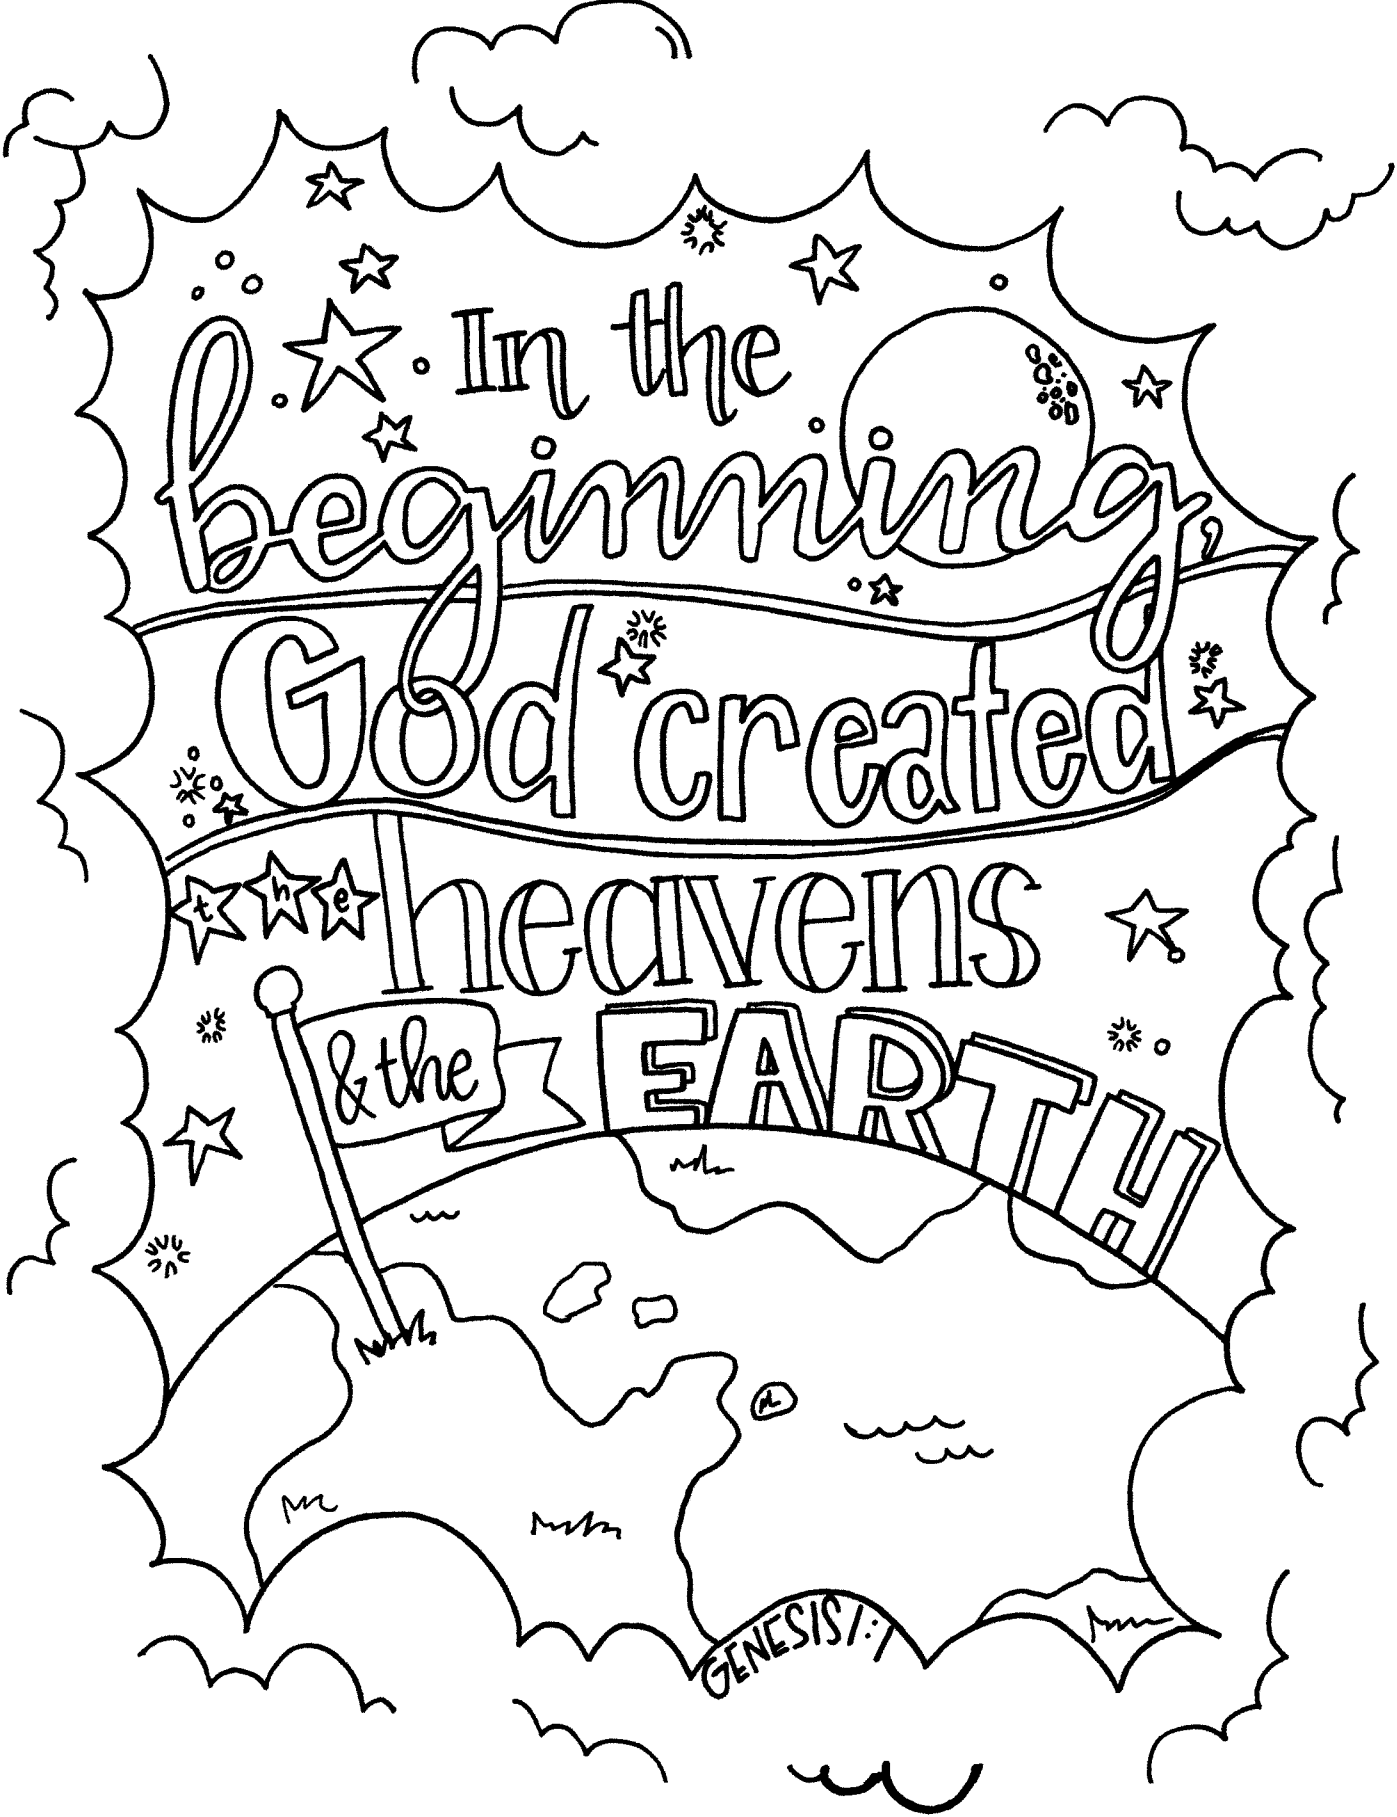 In the
beginning,
God created
the heavens
& the EARTH
GENESIS 1:1